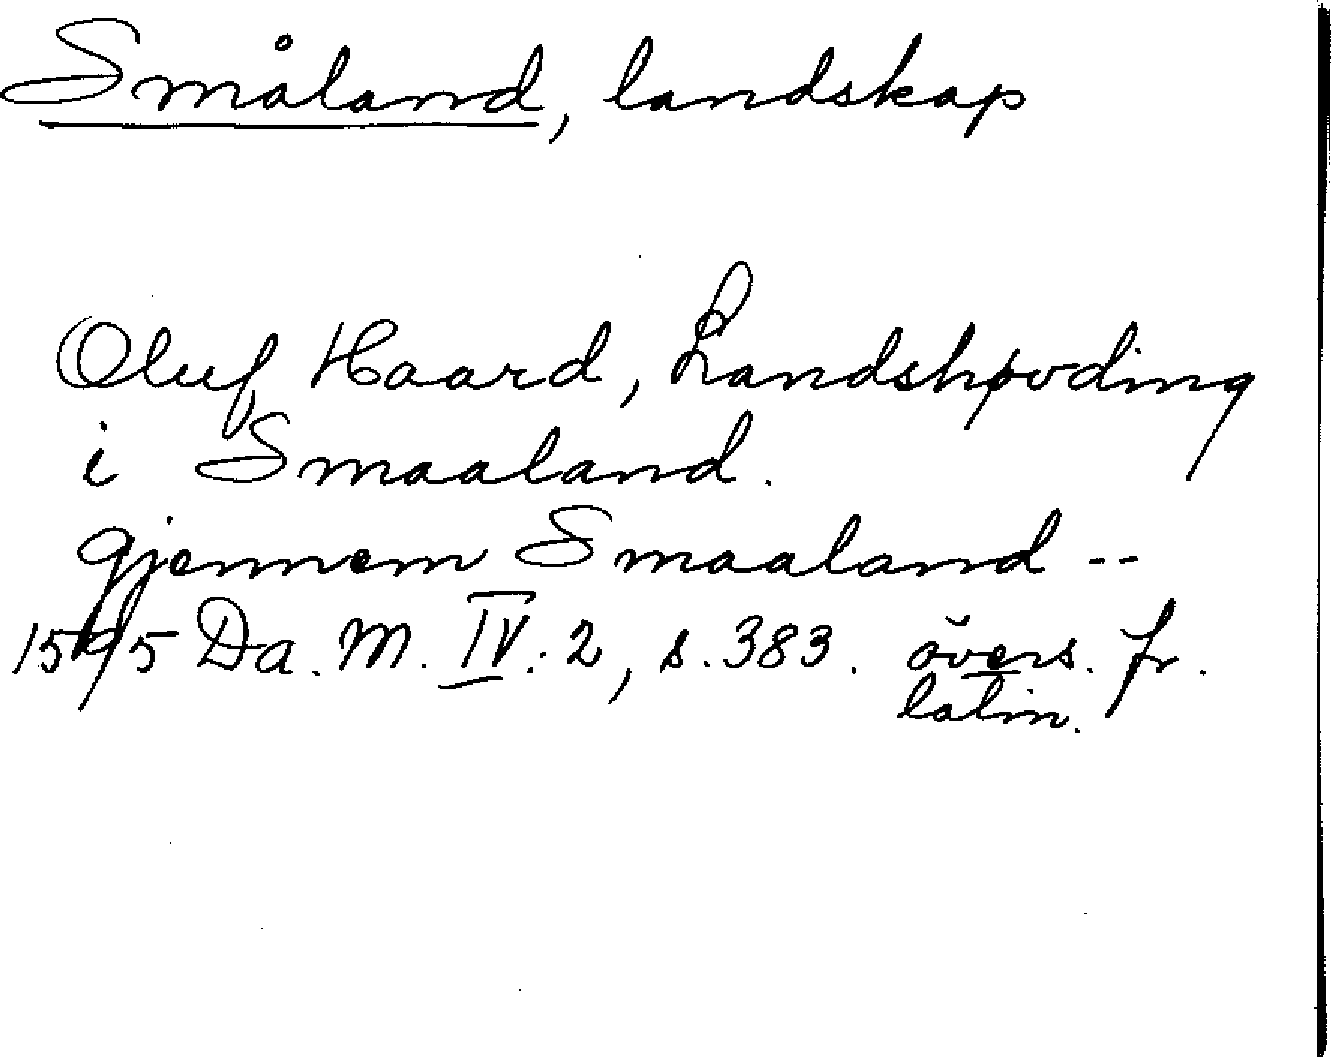 Småland, landskap
Oluf Haard, Landshøvding
i Smaaland.
gjennem Smaaland --
1595 Da. M. IV. 2, s. 383. övers. fr.
latin.